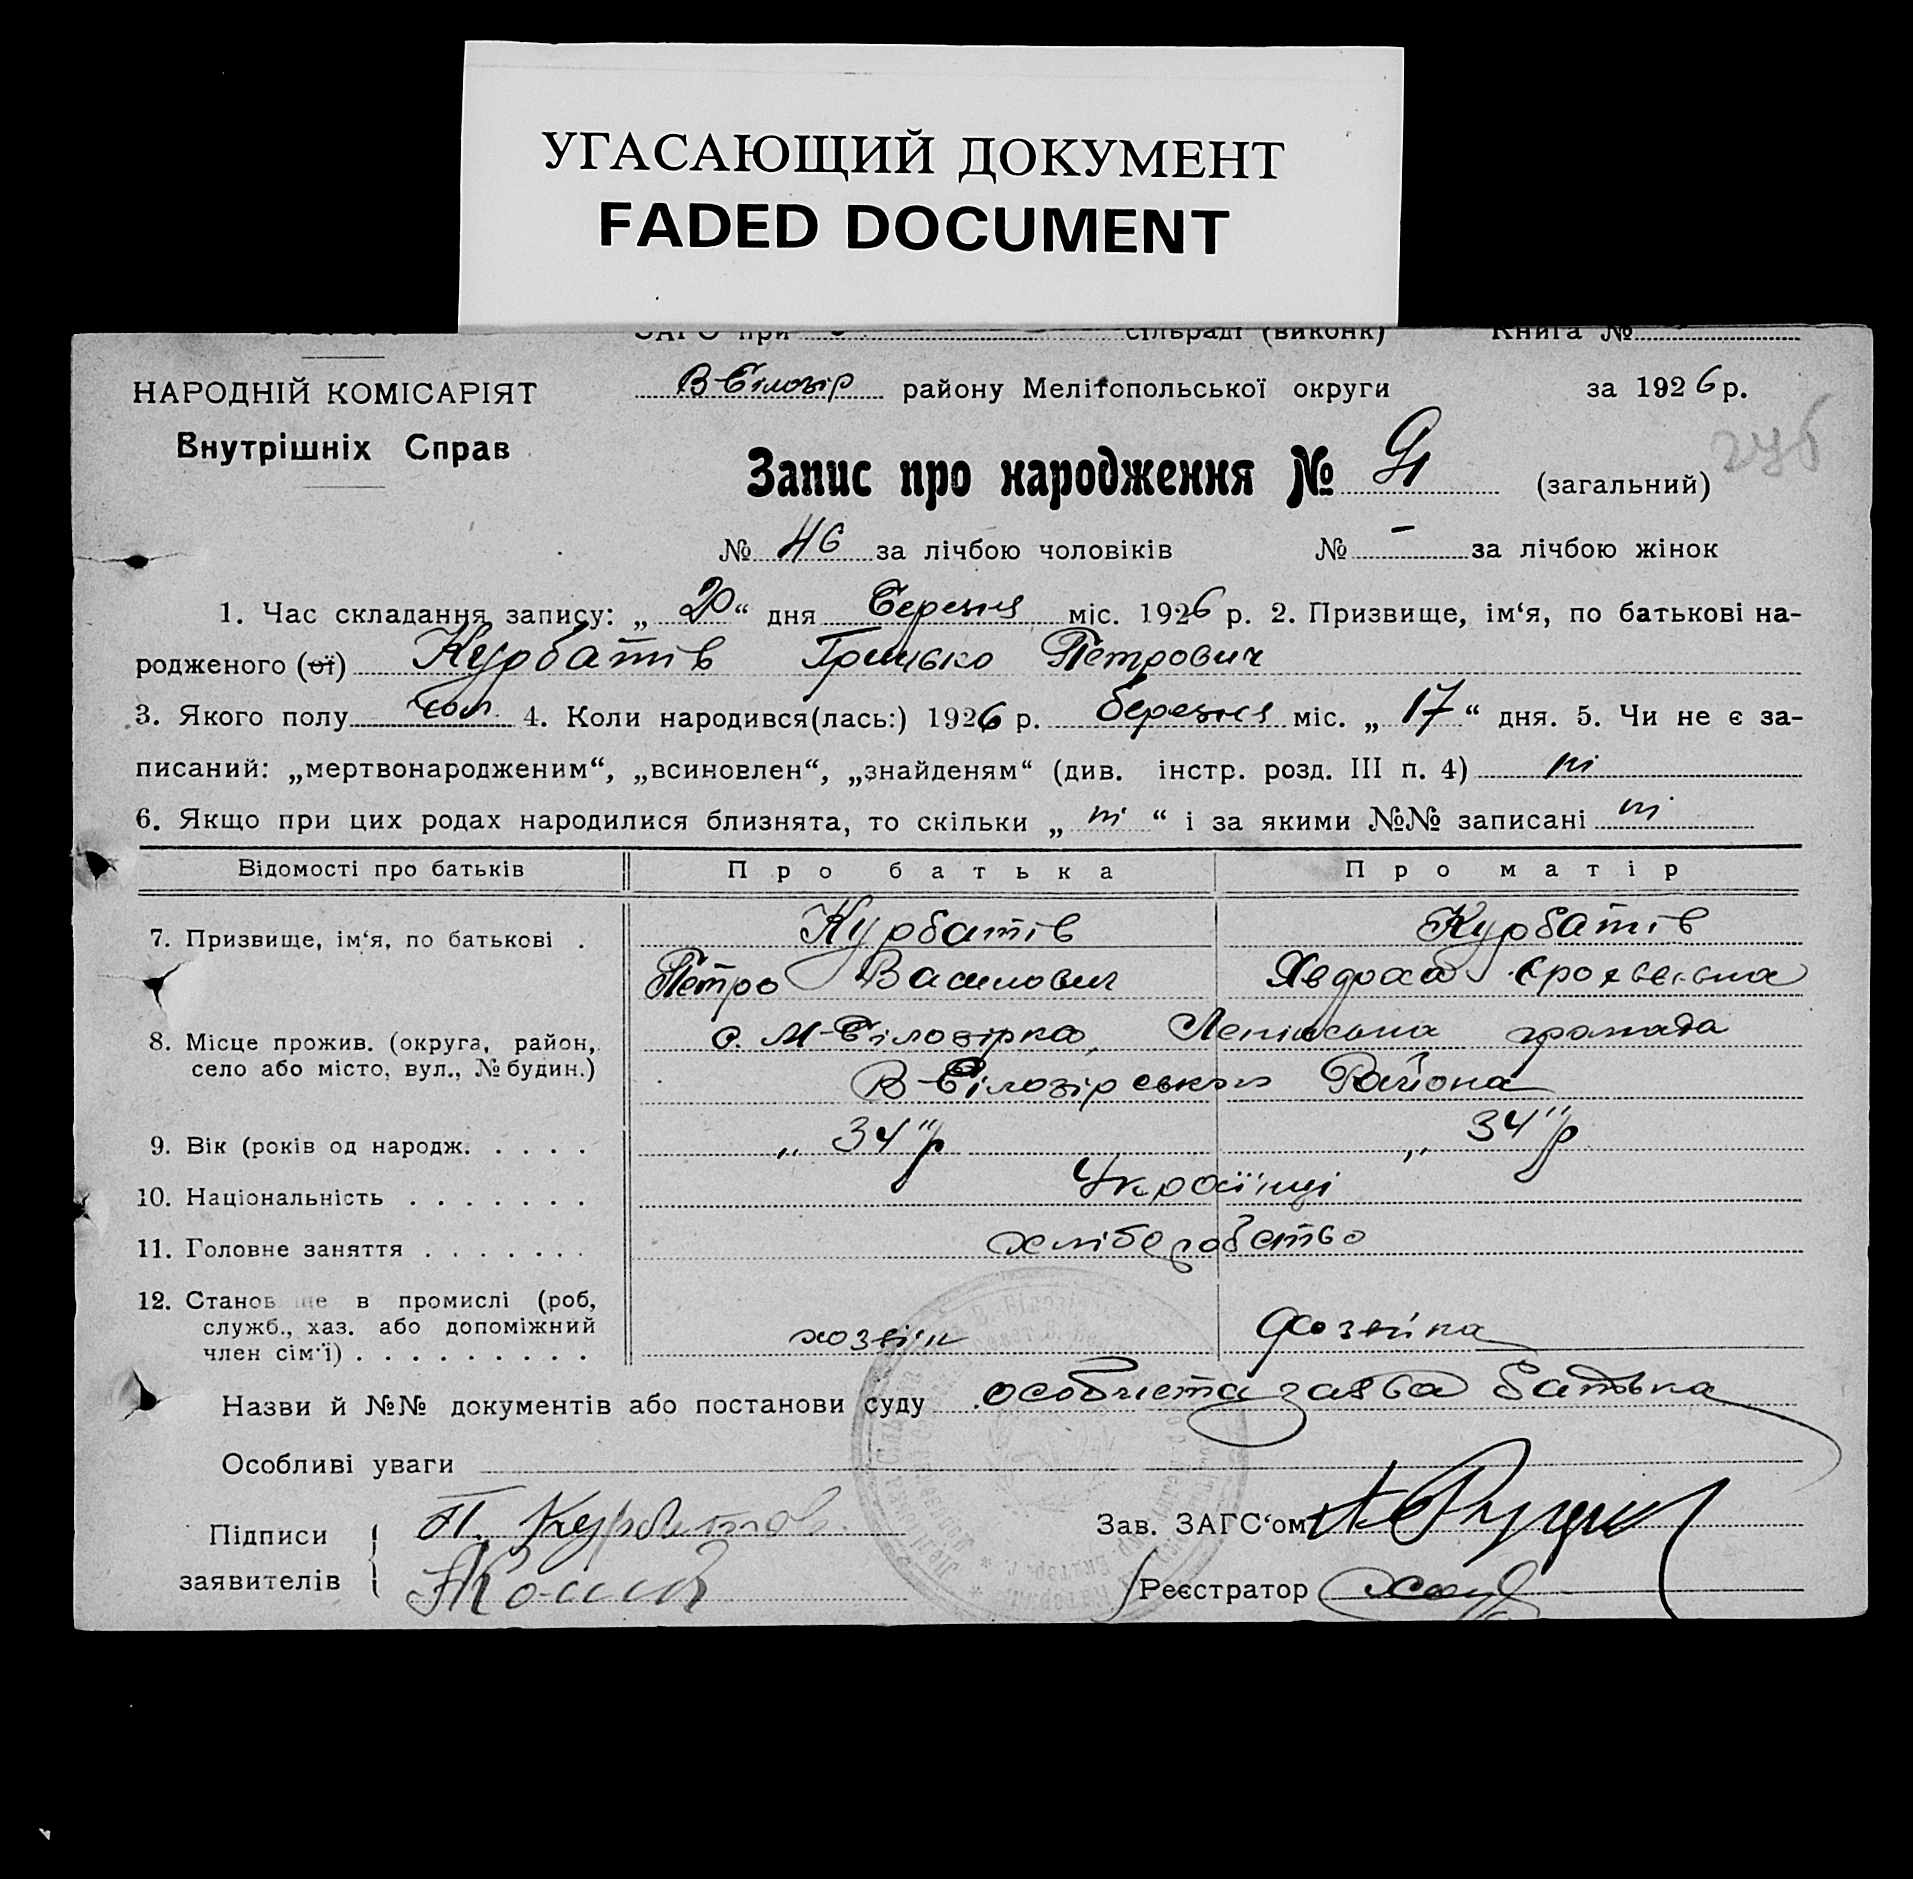 УГАСАЮЩИЙ ДОКУМЕНТ
FADED DOCUMENT
ЗАГС при сільраді (виконк) Книга №
НАРОДНІЙ КОМІСАРІЯТ
В-Білозір району Мелітопольської округи за 1926 р.
Внутрішніх Справ
Запис про народження № 91 (загальний)
№ 46 за лічбою чоловіків № – за лічбою жінок
1. Час складання запису: „ 20 “ дня Березня міс. 1926 р. 2. Призвище, ім‘я, по батькові на-
родженого (ої) Курбатів Грицько Петрович
3. Якого полу чол. 4. Коли народився(лась:) 1926 р. березня міс. „ 17 “ дня. 5. Чи не є за-
писаний: „мертвонародженим“, „всиновлен“, „знайденям“ (див. інстр. розд. III п. 4) ні
6. Якщо при цих родах народилися близнята, то скільки „ ні “ і за якими №№ записані ні
Відомості про батьків Про батька Про матір
7. Призвище, ім‘я, по батькові . Курбатів Курбатів
Петро Василович Явдоха
8. Місце прожив. (округа, район, с. М-Білозірка, Ленінська громада
село або місто, вул., № будин.) В-Білозірського Района
9. Вік (років од народж. . . . . „ 34 "р „ 34 "р
10. Національність . . . . . . . Українці
11. Головне заняття . . . . . . . хліборобство
12. Становище в промислі (роб,
служб., хаз. або допоміжний хозяїн хозяйка
член сім'ї) . . . . . . . . .
Назви й №№ документів або постанови суду особиста заява батька
Особливі уваги
Підписи П. Курбатов Зав. ЗАГС‘ом
заявителів Реєстратор